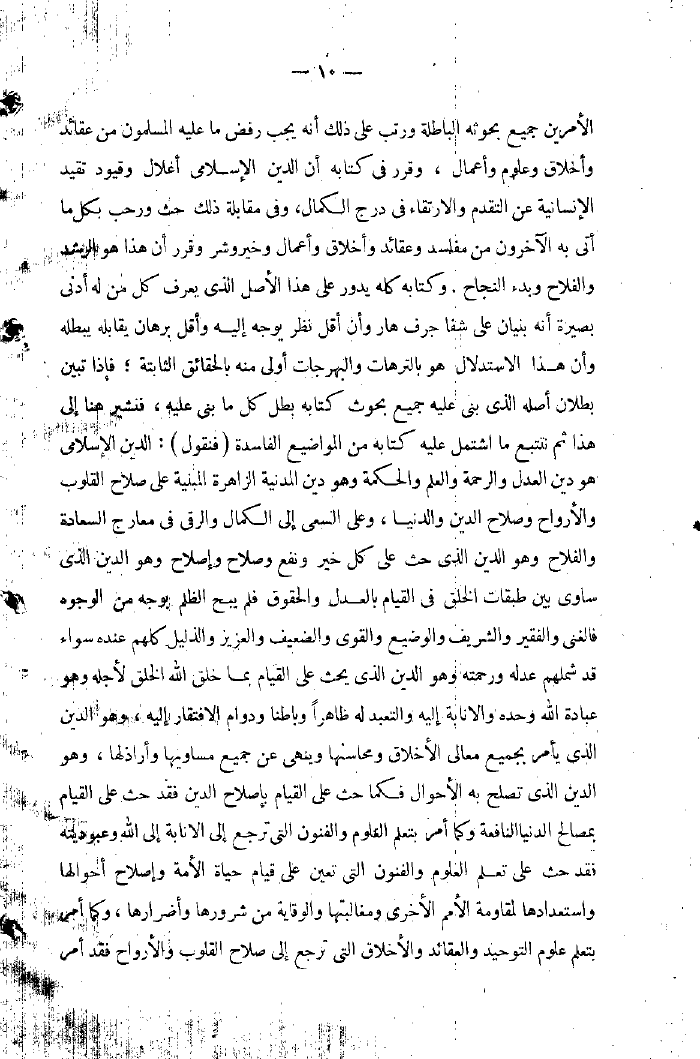 — ١٠ —
الأمرين جميع بحوثه الباطلة ورتب على ذلك أنه يجب رفض ما عليه المسلمون من عقائد
وأخلاق وعلوم وأعمال ، وقرر فى كتابه أن الدين الإسلامى أغلال وقيود تقيد
الإنسانية عن التقدم والارتقاء فى درج الكمال، وفى مقابلة ذلك حث ورحب بكل ما
أتى به الآخرون من مفاسد وعقائد وأخلاق وأعمال وخير وشر وقرر أن هذا هو الرشد
والفلاح وبدء النجاح . وكتابه كله يدور على هذا الأصل الذى يعرف كل من له أدنى
بصيرة أنه بنيان على شفا جرف هار وأن أقل نظر يوجه إليه وأقل برهان يقابله يبطله
وأن هذا الاستدلال هو بالترهات والبهرجات أولى منه بالحقائق الثابتة ؛ فإذا تبين
بطلان أصله الذى بنى عليه جميع بحوث كتابه بطل كل ما بنى عليه ، فنشير هنا إلى
هذا ثم نتتبع ما اشتمل عليه كتابه من المواضيع الفاسدة ( فنقول ) : الدين الإسلامى
هو دين العدل والرحمة والعلم والحكمة وهو دين المدنية الزاهرة المبنية على صلاح القلوب
والأرواح وصلاح الدين والدنيا ، وعلى السعى إلى الكمال والرقى فى معارج السعادة
والفلاح وهو الدين الذى حث على كل خير ونفع وصلاح وإصلاح وهو الدين الذى
ساوى بين طبقات الخلق فى القيام بالعدل والحقوق فلم يبح الظلم بوجه من الوجوه
فالغنى والفقير والشريف والوضيع والقوى والضعيف والعزيز والذليل كلهم عنده سواء
قد شملهم عدله ورحمته وهو الدين الذى يحث على القيام بما خلق الله الخلق لأجله وهو
عبادة الله وحده والانابة إليه والتعبد له ظاهراً وباطنا ودوام الافتقار إليه ، وهو الدين
الذى يأمر بجميع معالى الأخلاق ومحاسنها وينهى عن جميع مساويها وأراذلها ، وهو
الدين الذى تصلح به الأحوال فكما حث على القيام بإصلاح الدين فقد حث على القيام
بمصالح الدنيا النافعة وكما أمر بتعلم العلوم والفنون التى ترجع إلى الانابة إلى الله وعبوديته
فقد حث على تعلم العلوم والفنون التى تعين على قيام حياة الأمة وإصلاح أحوالها
واستعدادها لمقاومة الأمم الأخرى ومغالبتها والوقاية من شرورها وأضرارها ، وكما أمر
بتعلم علوم التوحيد والعقائد والأخلاق التى ترجع إلى صلاح القلوب والأرواح فقد أمر